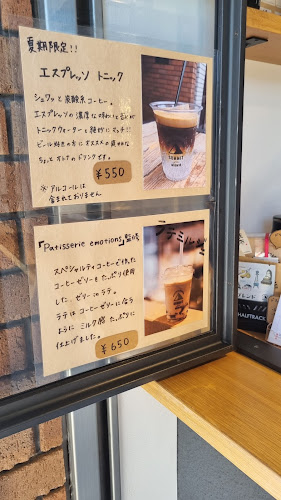 夏期限定!!
エスプレッソ トニック
シュワッと炭酸系コーヒー。
エスプレッソの濃厚な味わいと
トニックウォーターと絶妙にマッチ!!
ビール好きの方にオススメの
ちょっとオトナのドリンクです。
¥550
※アルコールは
含まれておりません
SUMMIT
「Patisserie emotions」監修
スペシャルティコーヒーで作った
コーヒーゼリーをたっぷり使用
した、ゼリーinラテ。
ラテはコーヒーゼリーに合う
ように ミルク感 たっぷりに
仕上げました。
¥650
HALFTRACK